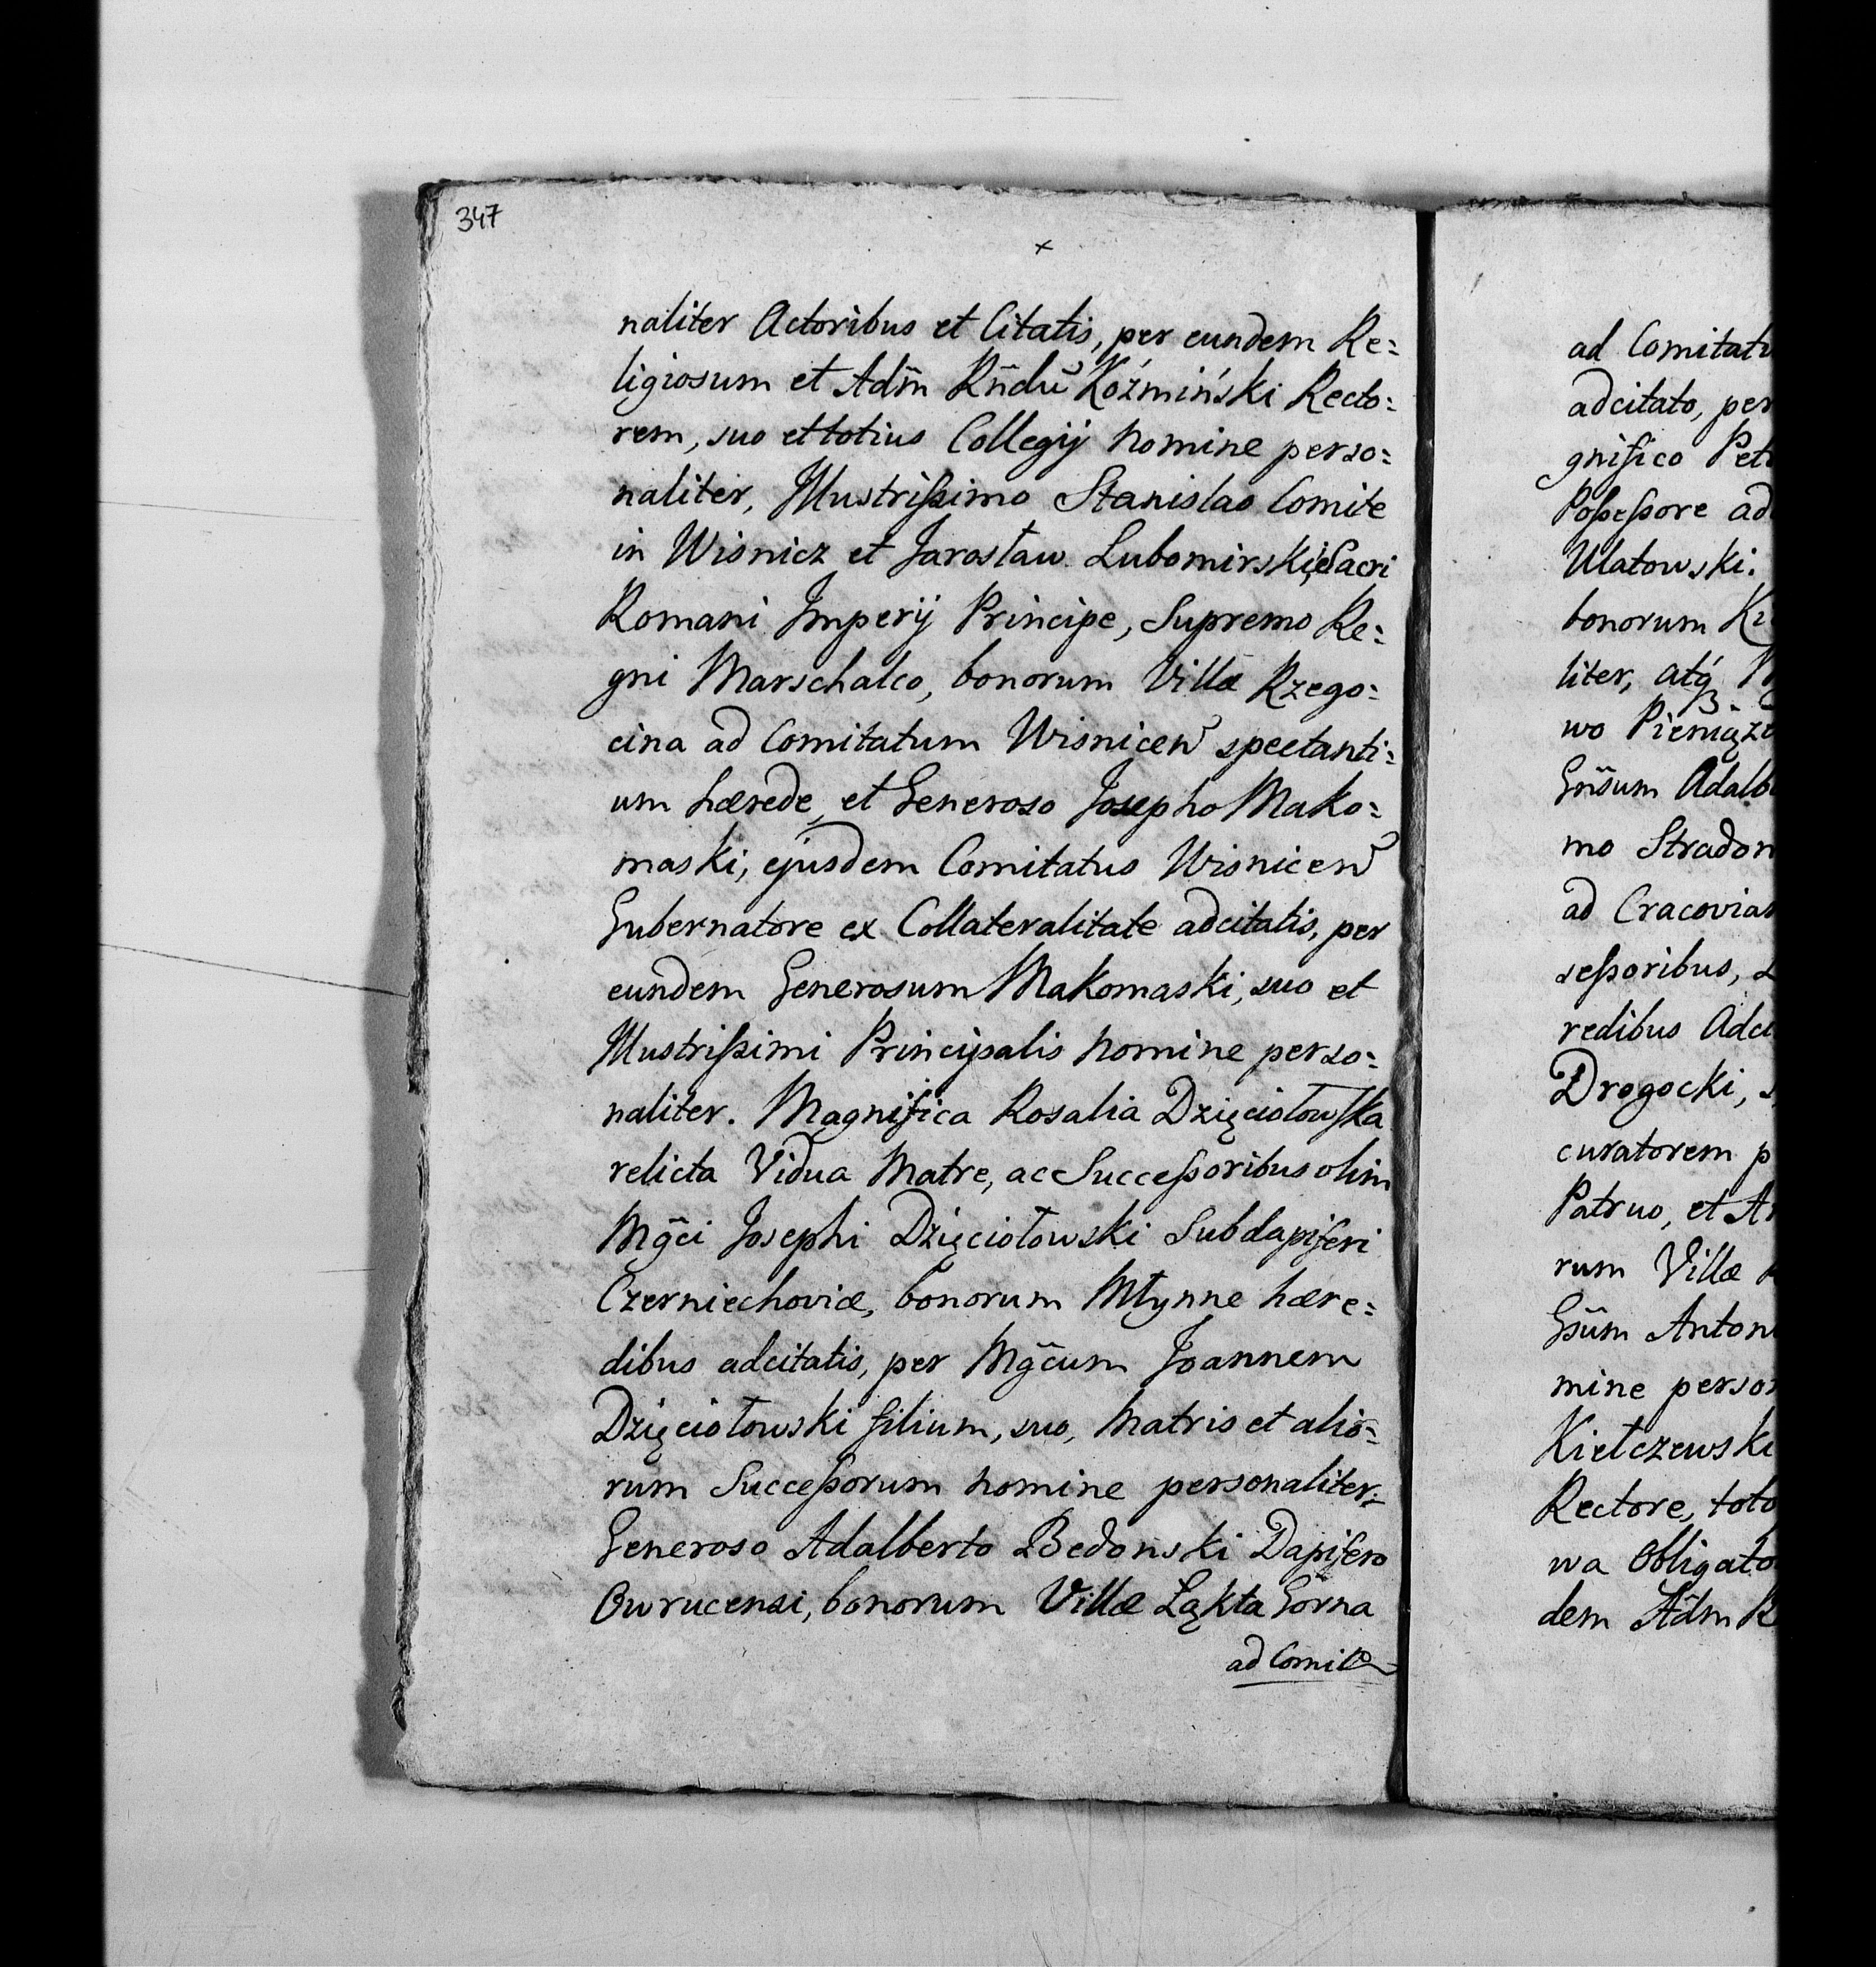 347
naliter Actoribus et Citatis, per eundem Re:
ligiosum et Adm̃ Rñdũ Koźmiński Recto:
rem, suo et totius Collegij nomine perso:
naliter, Illustrißimo Stanislao Comite
in Wisnicz et Jarosław Lubomirski, Sacri
Romani Imperij Principe, Supremo Re:
gni Marschalco, bonorum Villæ Rzego:
cina ad Comitatum Wisnicen̄ spectanti:
um hærede, et Generoso Josepho Mako:
maski, ejusdem Comitatus Wisnicen̄
Gubernatore ex Collateralitate adcitatis, per
eundem Generosum Makomaski, suo et
Illustrißimi Principalis nomine perso:
naliter. Magnifica Rosalia Dzięciołowska
relicta Vidua Matre, ac Succeßoribus olim
Mg̃ci Josephi Dzięciołowski Subdapiferi
Czerniechoviæ, bonorum Młynne hære:
dibus adcitatis, per Mg̃cum Joannem
Dzięciołowski filium, suo, Matris et alio:
rum Succeßorum nomine personaliter:
Generoso Adalberto Bedonski Dapifero
Owrucensi, bonorum Villæ Łąkta Górna
ad Comita
ad Comitatu
adcitato, per
gnifico Pet
Poßeßore ad
Ulatowski.
bonorum
liter, atq́
wo Pieniąz
Gñsum Adalb
mo Stradom
ad Cracovia
seßoribus,
redibus Adci
Drogocki,
curatorem p
Patruo, et A
rum Villæ
Gñsum Anton
mine person
Kiełczewski
Rectore, toto
wa Obligato
dem Adm R